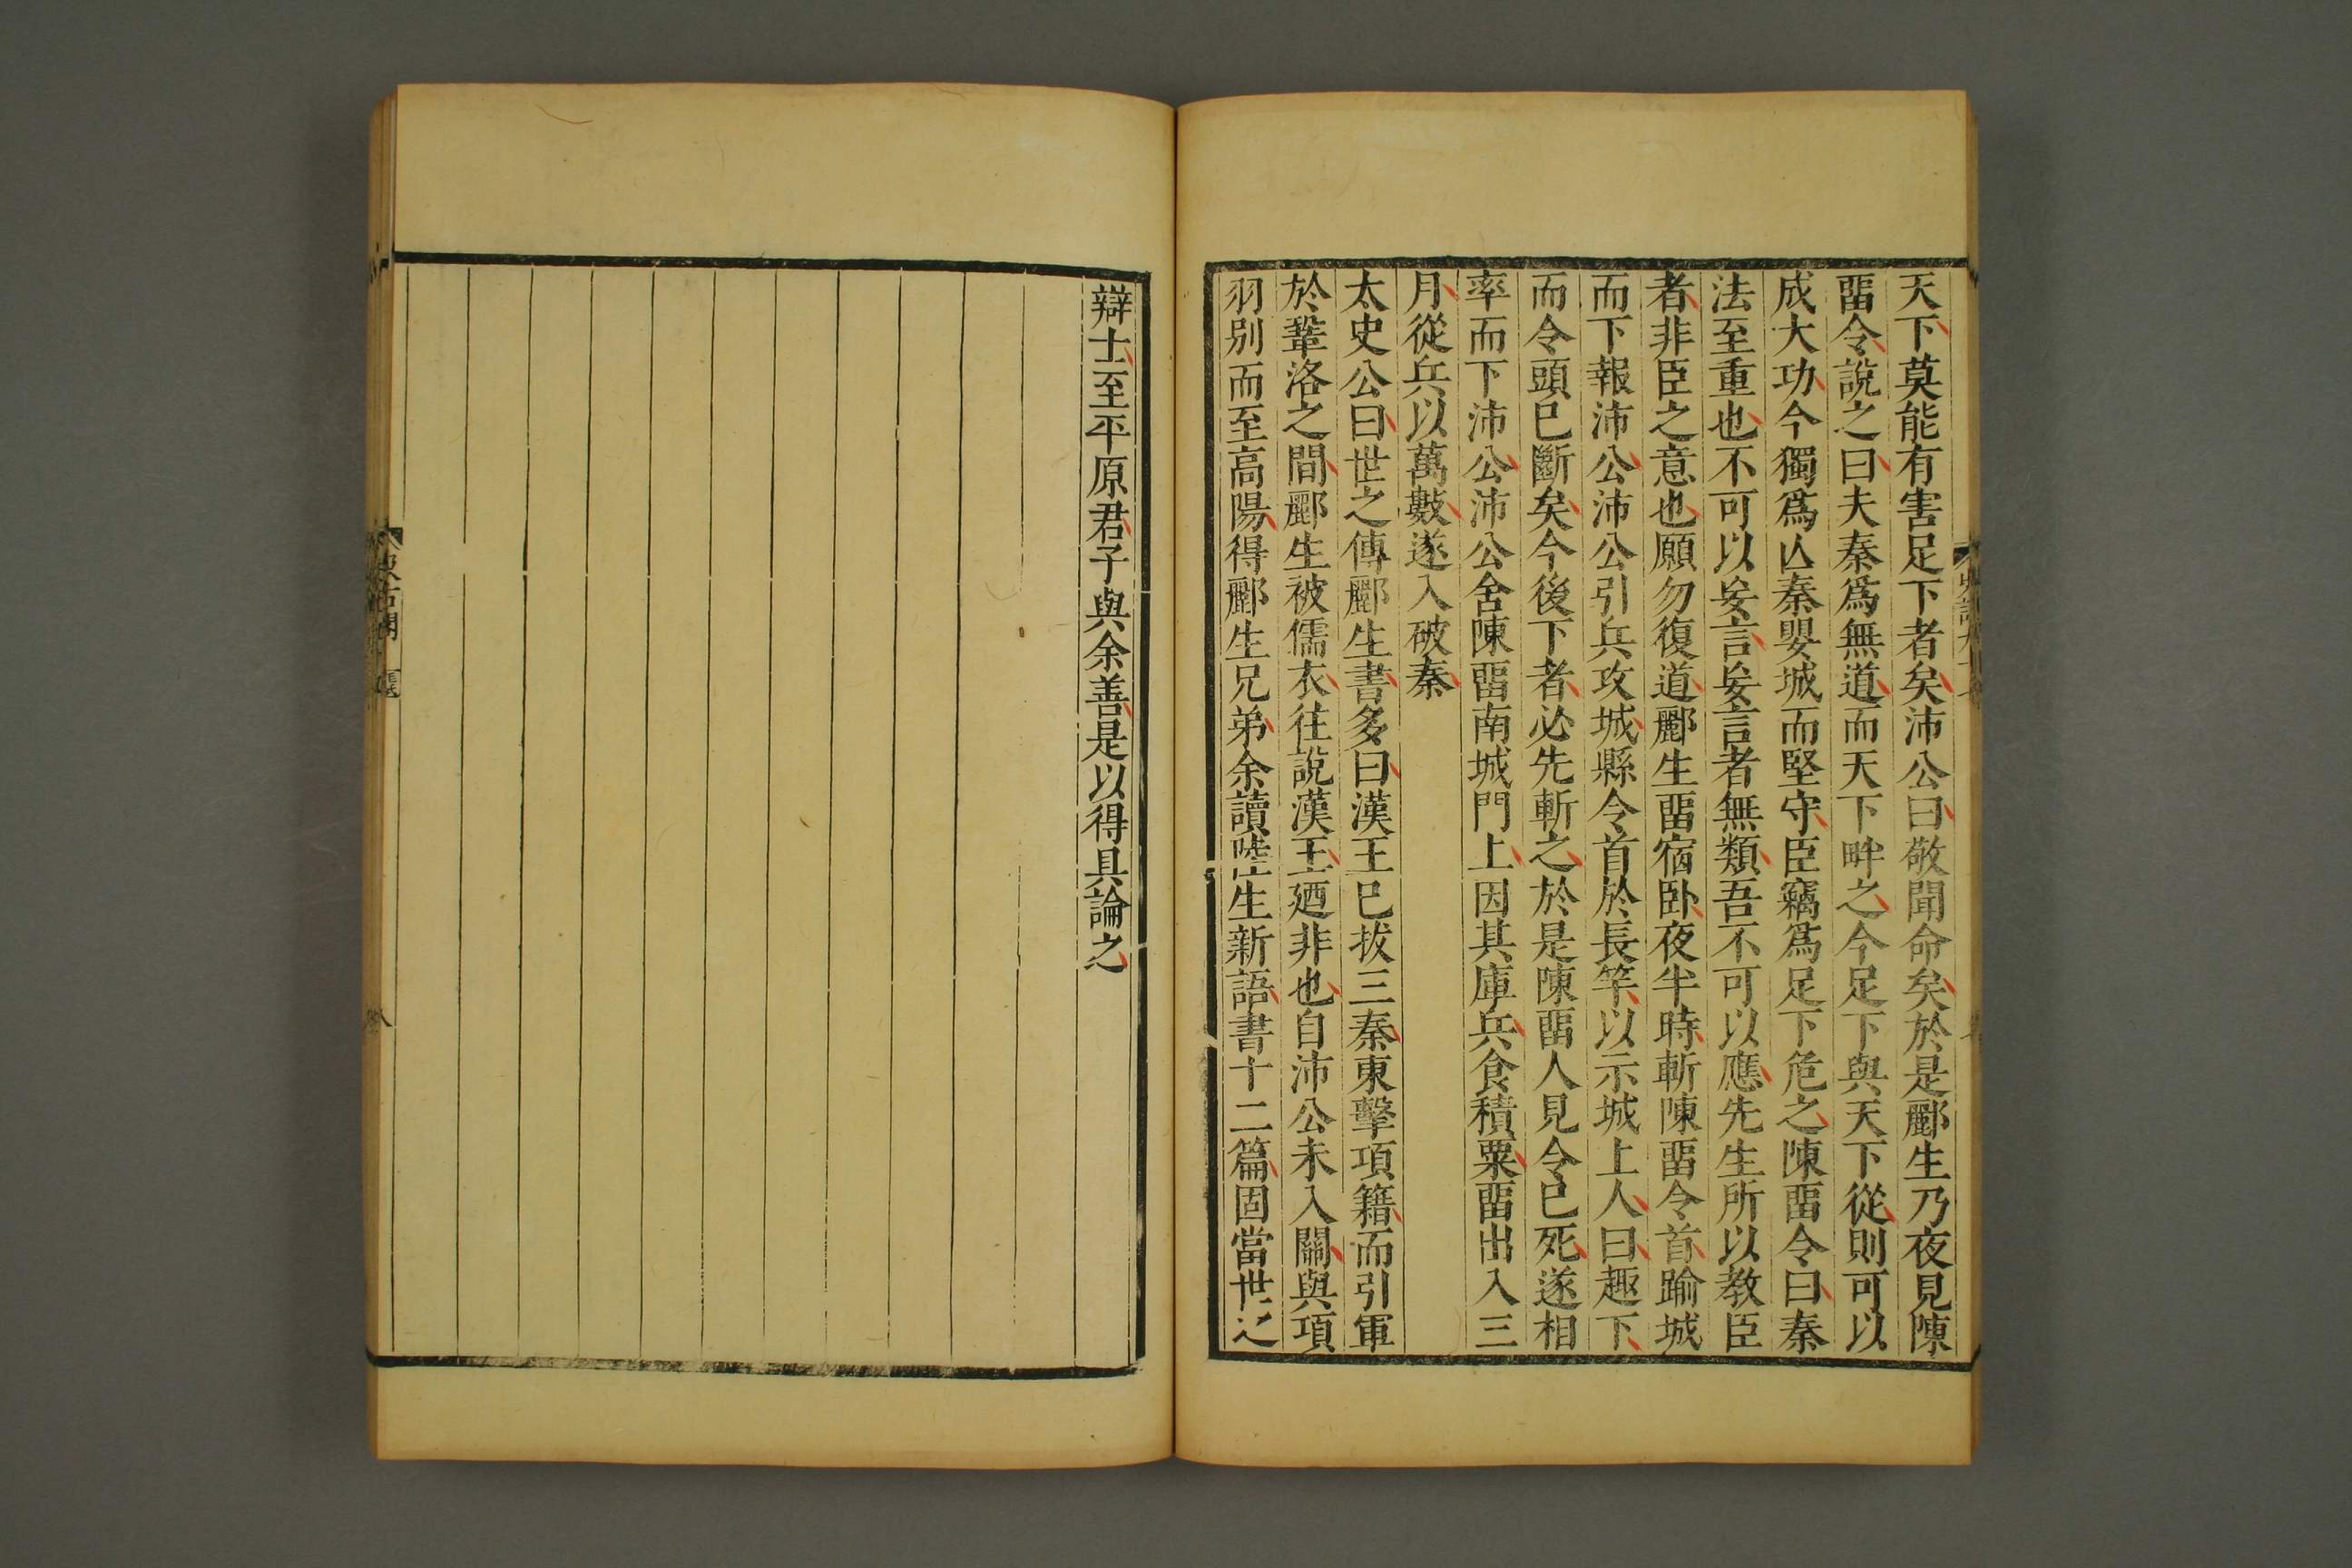 天下莫能有害足下者矣沛公曰敬聞命矣於是酈生乃夜見陳
畱令說之曰夫秦爲無道而天下畔之今足下與天下從則可以
成大功今獨爲亾秦嬰城而堅守臣竊爲足下危之陳畱令曰秦
法至重也不可以妄言妄言者無類吾不可以應先生所以教臣
者非臣之意也願勿復道酈生畱宿臥夜半時斬陳畱令首踰城
而下報沛公沛公引兵攻城縣令首於長竿以示城上人曰趣下
而令頭已斷矣今後下者必先斬之於是陳畱人見令已死遂相
率而下沛公沛公舍陳畱南城門上因其庫兵食積粟畱出入三
月從兵以萬數遂入破秦
太史公曰世之傳酈生書多曰漢王已拔三秦東擊項籍而引軍
於鞏洛之間酈生被儒衣往說漢王廼非也自沛公未入關與項
羽別而至高陽得酈生兄弟余讀陸生新語書十二篇固當世之
辯士至平原君子與余善是以得具論之